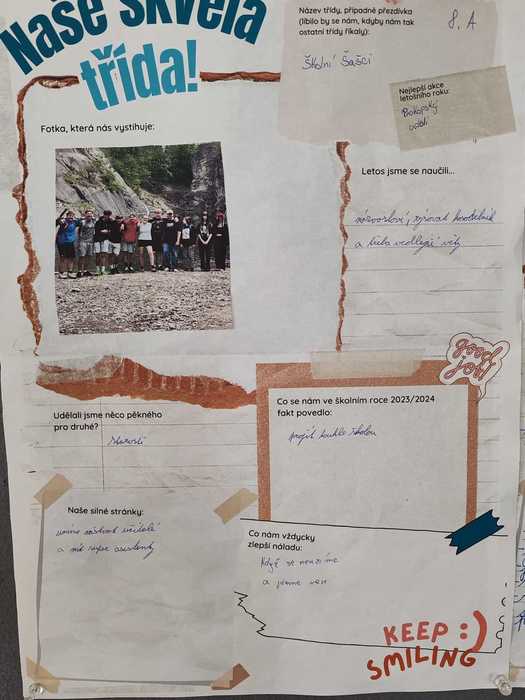 Naše skvělá
třída!
Název třídy, případně přezdívka
(líbilo by se nám, kdyby nám tak
ostatní třídy říkaly):
8. A
Školní Šašci
Nejlepší akce
letošního roku:
Prokopský
údolí
Fotka, která nás vystihuje:
Letos jsme se naučili...
názvosloví, rýsovat
a třeba vedlejší věty
good
job!
Udělali jsme něco pěkného
pro druhé?
starosti
Co se nám ve školním roce 2023/2024
fakt povedlo:
projít touhle školou
Naše silné stránky:
umíme naštvat učitele
a mít super asistenty
Co nám vždycky
zlepší náladu:
Když se neučíme
a jdeme ven
KEEP :)
SMILING